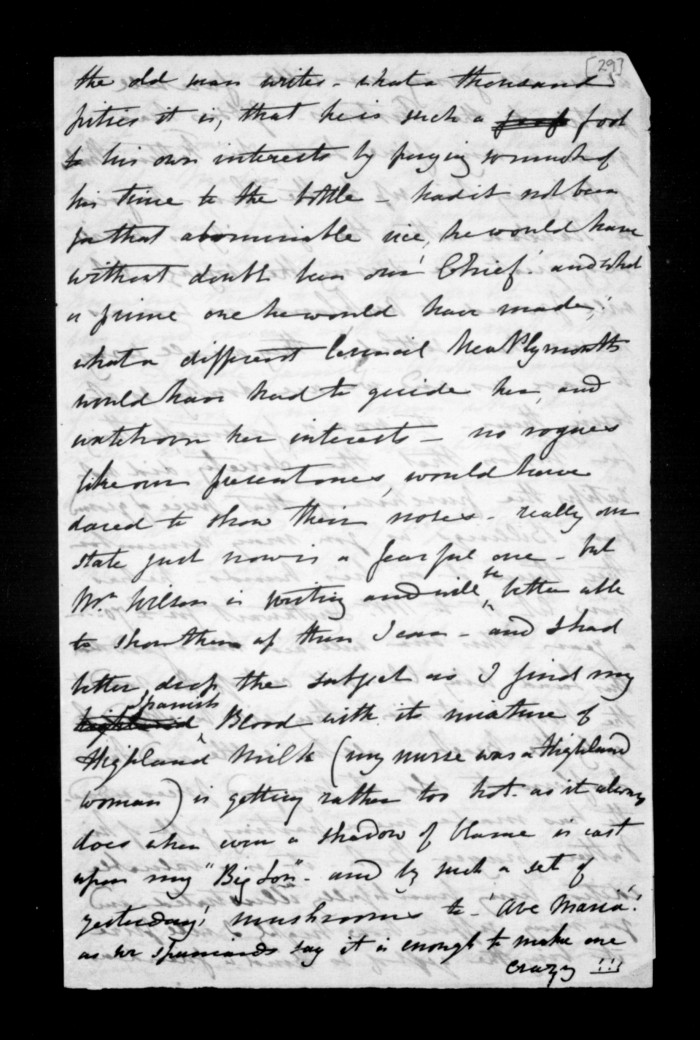 [29]
the old man writes - what a thousand
pities it is, that he is such a fool
to his own interests by paying so much of
his time to the bottle - had it not been
for that abominable vice, he would have
without doubt been our 'Chief' and what
a prime one he would have made,!
what a different Council New Plymouth
would have had to guide her, and
watch over her interests - no rogues
like our present ones, would have
dared to show their noses - really our
state just now is a fearful one - but
Wm Wilson is writing and will be better able
to show them up than I can - and I had
better drop the subject as I find my
highland Spanish Blood with its mixture of
Highland Milk (my nurse was a Highland
woman) is getting rather too hot - as it always
does when even a shadow of blame is cast
upon my "Big Son" - and by such a set of
yesterday's mushrooms to - Ave Maria!!
as we Spaniards say it is enough to make one
crazy !!!